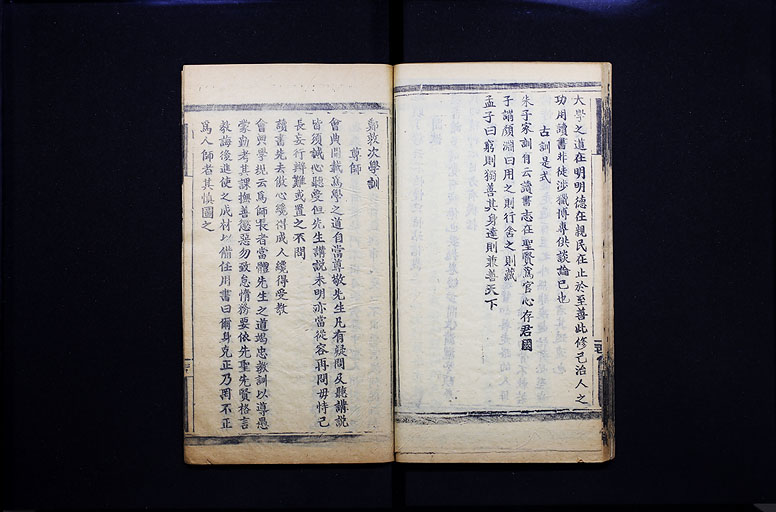 大學之道在明明德在親民在止於至善此修己治人之
功用讀書非徒涉獵博專供談論已也
古訓是式
朱子家訓有云讀書志在聖賢爲官心存君國
子謂顏淵曰用之則行舍之則藏
孟子曰窮則獨善其身達則兼善天下
鄭敦次學訓
尊師
會典開載爲學之道自當尊敬先生凡有疑問及聽講說
皆須誠心聽受但先生講說未明亦當從容再問毋恃己
長妄行辯難或置之不問
讀書先去傲心纔得成人纔得受教
會典學規云爲師長者當體先生之道竭忠教訓以導愚
蒙勤考其課撫善懲惡勿致怠惰務要依先聖先賢格言
教誨後進使之成材以備任用書曰爾身克正乃罔不正
爲人師者其慎圖之